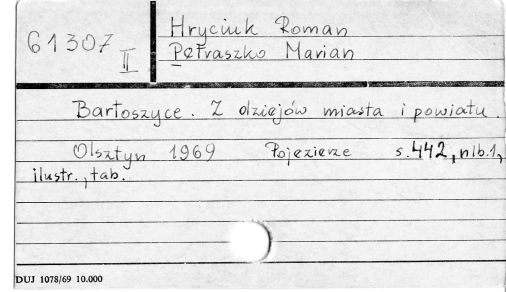 61307 II
Hryciuk Roman
Petraszko Marian
Bartoszyce. Z dziejów miasta i powiatu.
Olsztyn 1969 Pojezierze s.442, nlb.1,
ilustr., tab.
DUJ 1078/69 10.000